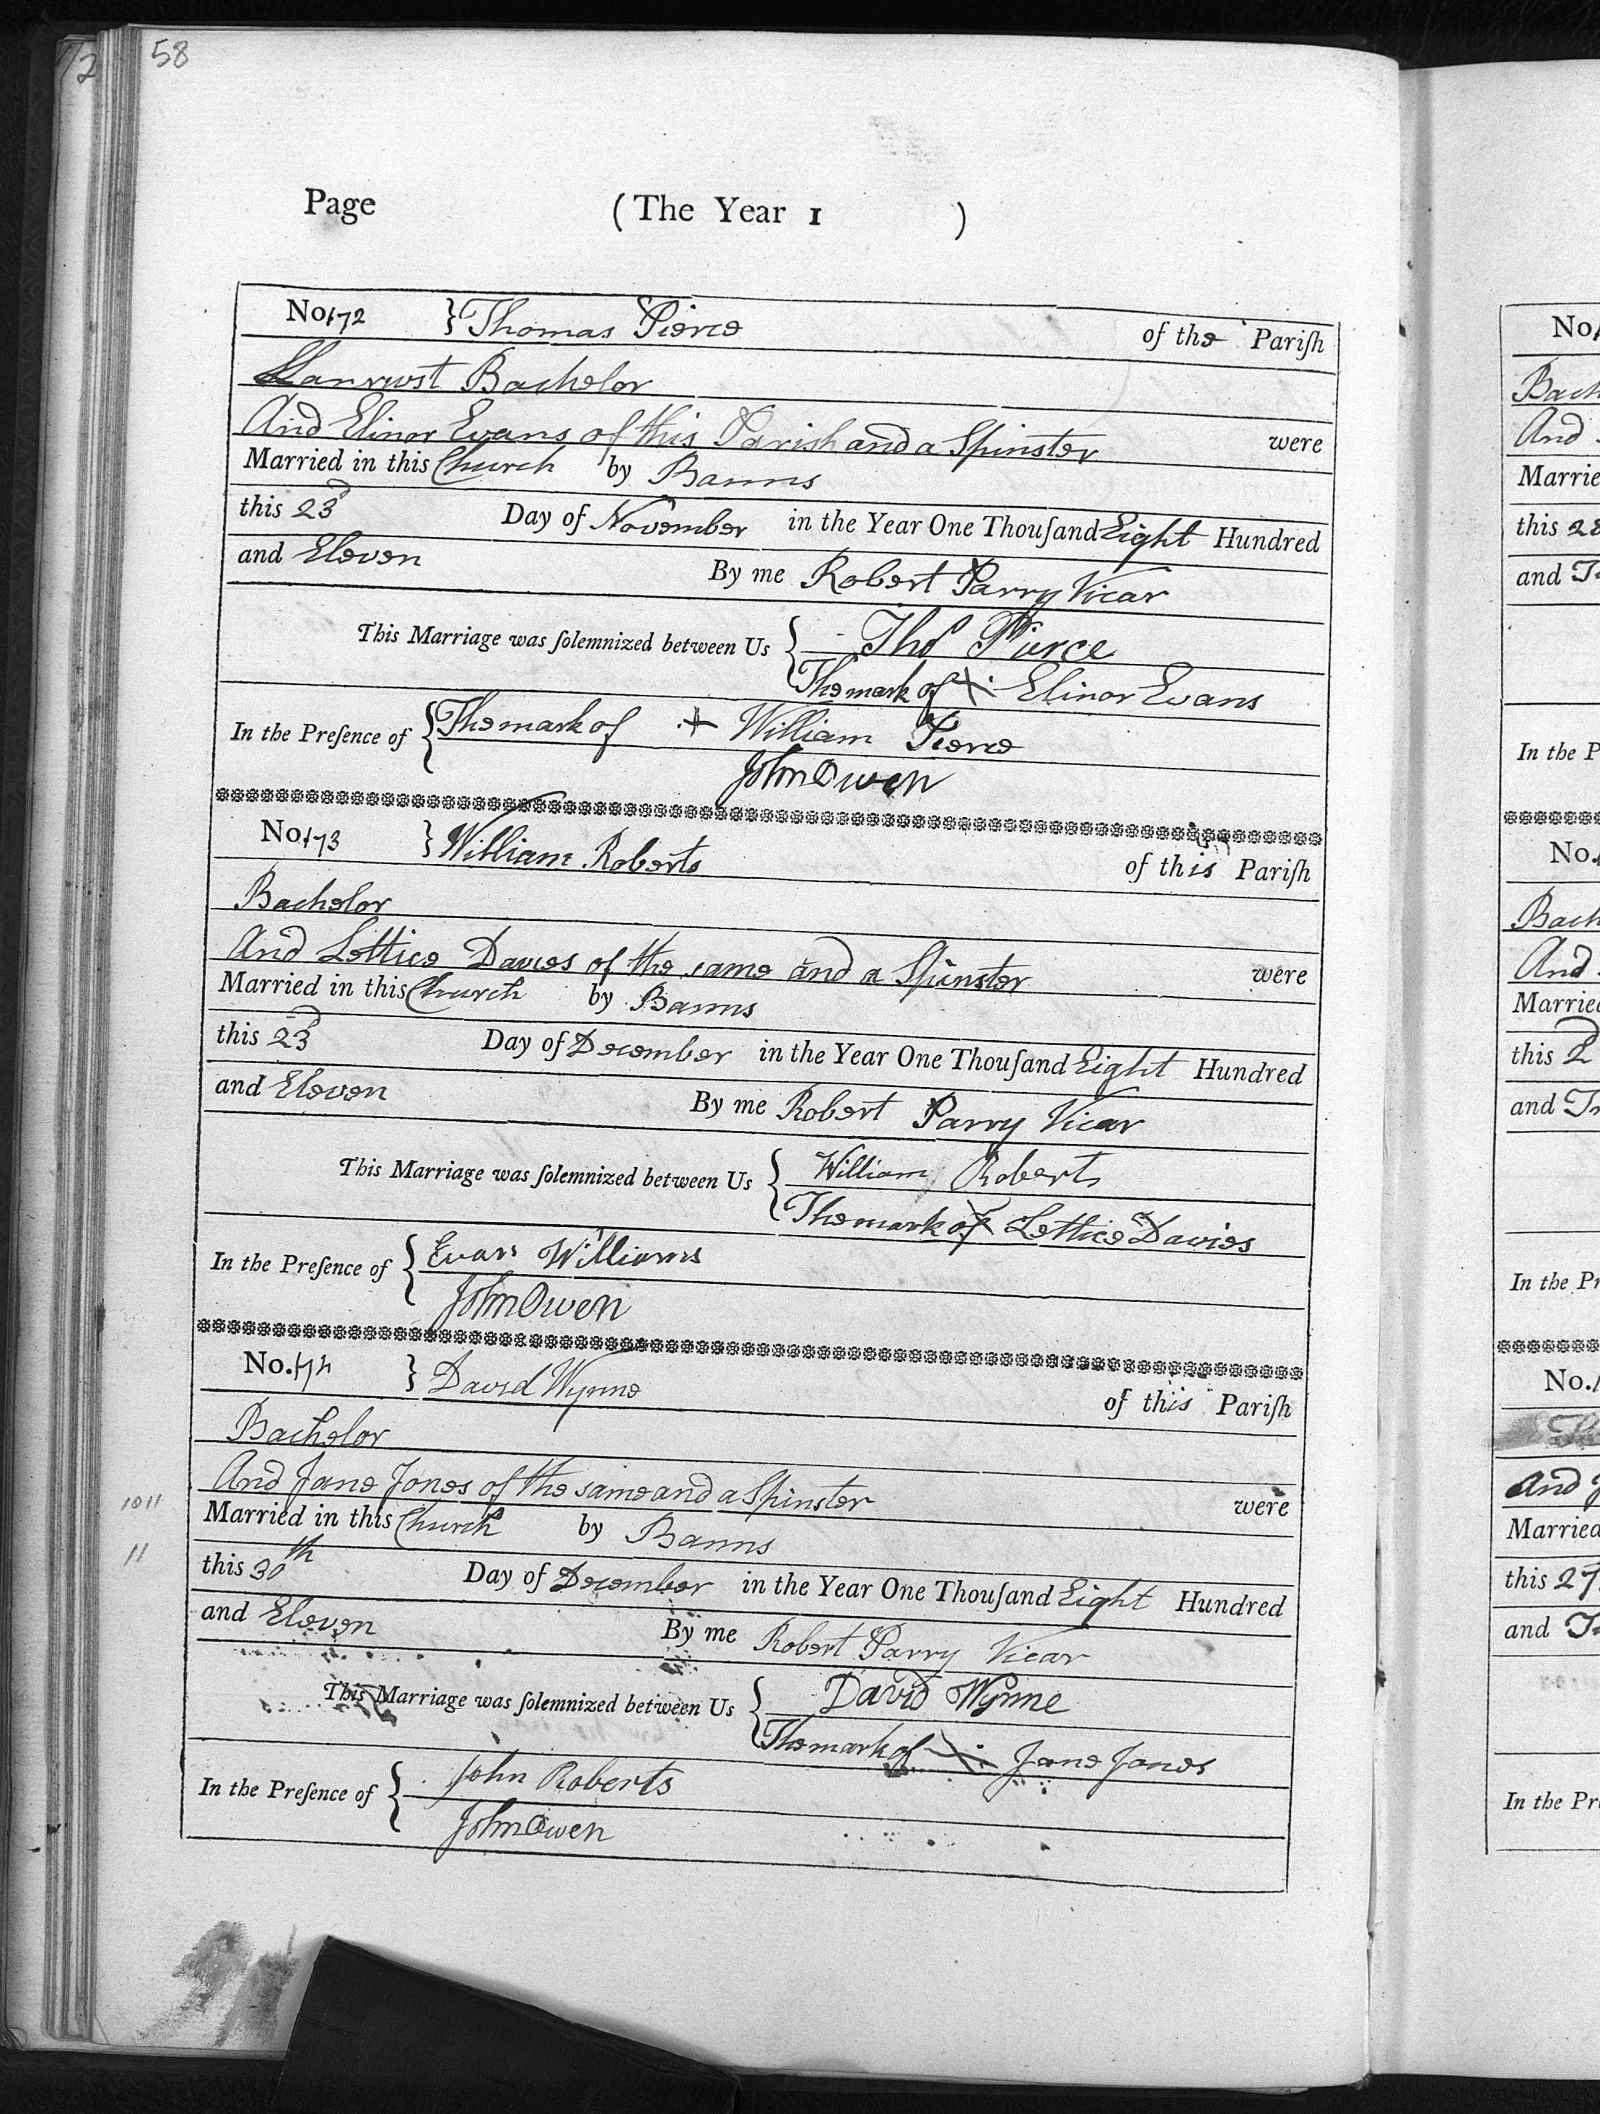 58
2
Page (The Year 1 )
No. 172 } Thomas Pierce of the Pariſh
Llanrwst Bachelor
And Elinor Evans of this Parish and a Spinster were
Married in this Church by Banns
this 23d Day of November in the Year One Thouſand Eight Hundred
and Eleven By me Robert Parry Vicar
This Marriage was ſolemnized between Us { Thos Pierce
The mark of X Elinor Evans
In the Preſence of { The mark of + William Pierce
John Owen
No. 173 } William Roberts of this Pariſh
Bachelor
And Lettice Davies of the same and a Spinster were
Married in this Church by Banns
this 23d Day of December in the Year One Thouſand Eight Hundred
and Eleven By me Robert Parry Vicar
This Marriage was ſolemnized between Us { William Roberts
The mark of X Lettice Davies
In the Preſence of { Evan Williams
John Owen
No. 174 } David Wynne of this Pariſh
Bachelor
And Jane Jones of the same and a Spinster were
Married in this Church by Banns
this 30th Day of December in the Year One Thouſand Eight Hundred
and Eleven By me Robert Parry Vicar
This Marriage was ſolemnized between Us { David Wynne
The mark of X Jane Jones
In the Preſence of { John Roberts
John Owen
No.
Bach
And
Marrie
this 28
and
In the P
No.
Bach
And
Married
this 2
and
In the Pr
No.
And J
Married
this 27
and
In the Pr